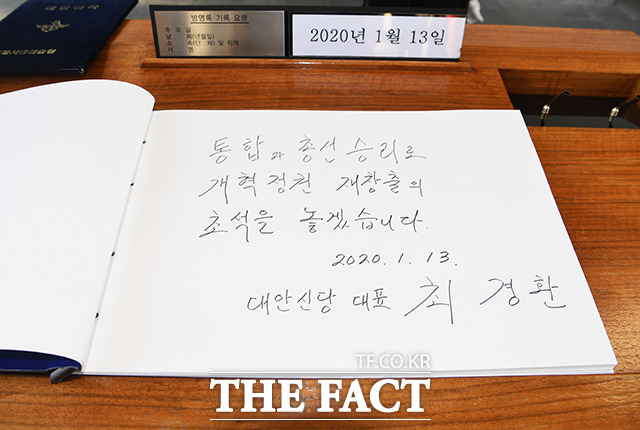 방명록 기록 요령
추 모 글
날 짜(년월일)
소 속(단 체) 및 직책
서 명
2020년 1월 13일
통합과 총선 승리로
개혁정권 재창출의
초석을 놓겠습니다.
2020. 1. 13.
대안신당 대표 최 경환
TF.CO.KR
THE FACT